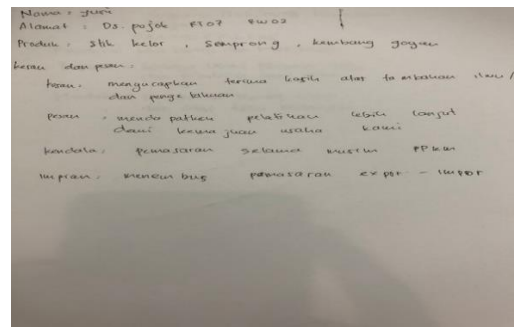 Nama : Yuni
Alamat : Ds. pojok RT07 RW02
Produk : stik kelor, semprong, kembang goyan
kesan dan pesan :
kesan : mengucapkan terima kasih atas tambahan ilmu /
dan pengetahuan
pesan : mendapatkan pelatihan lebih lanjut
demi kemajuan usaha kami
kendala : pemasaran selama musim PPKM
Impian : menembus pemasaran expor - impor